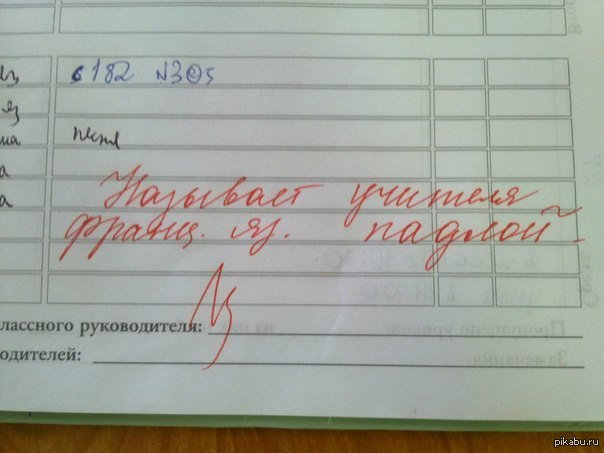 из с182 N305
яз
ма песня
а
а Называет учителя
франц. яз. падлой.
лассного руководителя:
одителей:
pikabu.ru